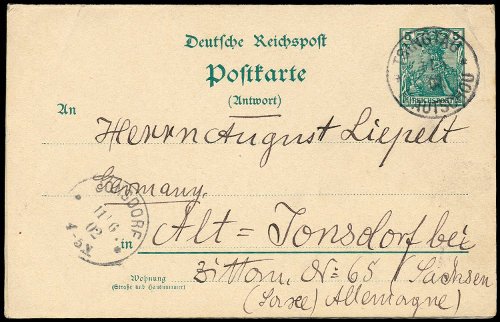 Deutsche Reichspost
Postkarte
(Antwort)
An
TSINGTAU
KIAUTSCHOU
REICHSPOST
Herrn August Liepelt
Germany.
JONSDORF
11 6
02
4-5N
in Alt=Jonsdorf bei
Wohnung
(Straße und Hausnummer)
Zittau, No=65 Sachsen
(Saxe) Allemagne)